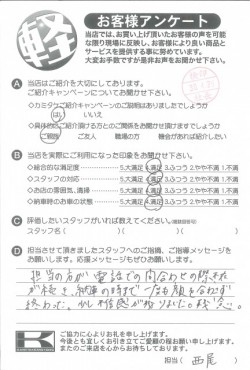 軽
お客様アンケート
当店では、お買い上げ頂いたお客様の声を可能
な限り現場に反映し、お客様により良い商品と
サービスを提供する事に努めています。
大変お手数ですが是非お声をお聞かせ下さい。
A 当店はご紹介を大切にしております。
ご紹介キャンペーンについてお聞かせ下さい。
はい いいえ
ご親族 ご友人 職場の方 機会があれば紹介したい
B 当店を実際にご利用になった印象をお聞かせ下さい。
◇総合的な満足度 5.大満足 4.満足 3.ふつう 2.やや不満 1.不満
◇スタッフの対応 5.大満足 4.満足 3.ふつう 2.やや不満 1.不満
◇お店の雰囲気、清掃 5.大満足 4.満足 3.ふつう 2.やや不満 1.不満
◇納車時のお車の状態 5.大満足 4.満足 3.ふつう 2.やや不満 1.不満
C 評価したいスタッフがいれば教えてください。
スタッフ名( )( )( )
D 担当させて頂きましたスタッフへのご指摘、ご指導メッセージを
お願いします。応援メッセージもぜひお願いします。
担当の方が電話での問合わせの際
納車の時まで一度も顔を合わせず
終わった。少し不信感が
K
ご協力に心よりお礼を申し上げます。
今後とも宜しくお引き立てご愛顧の程お願い申し上げます。
またのご来店を心からお待ちしております。
担当( 西尾 )